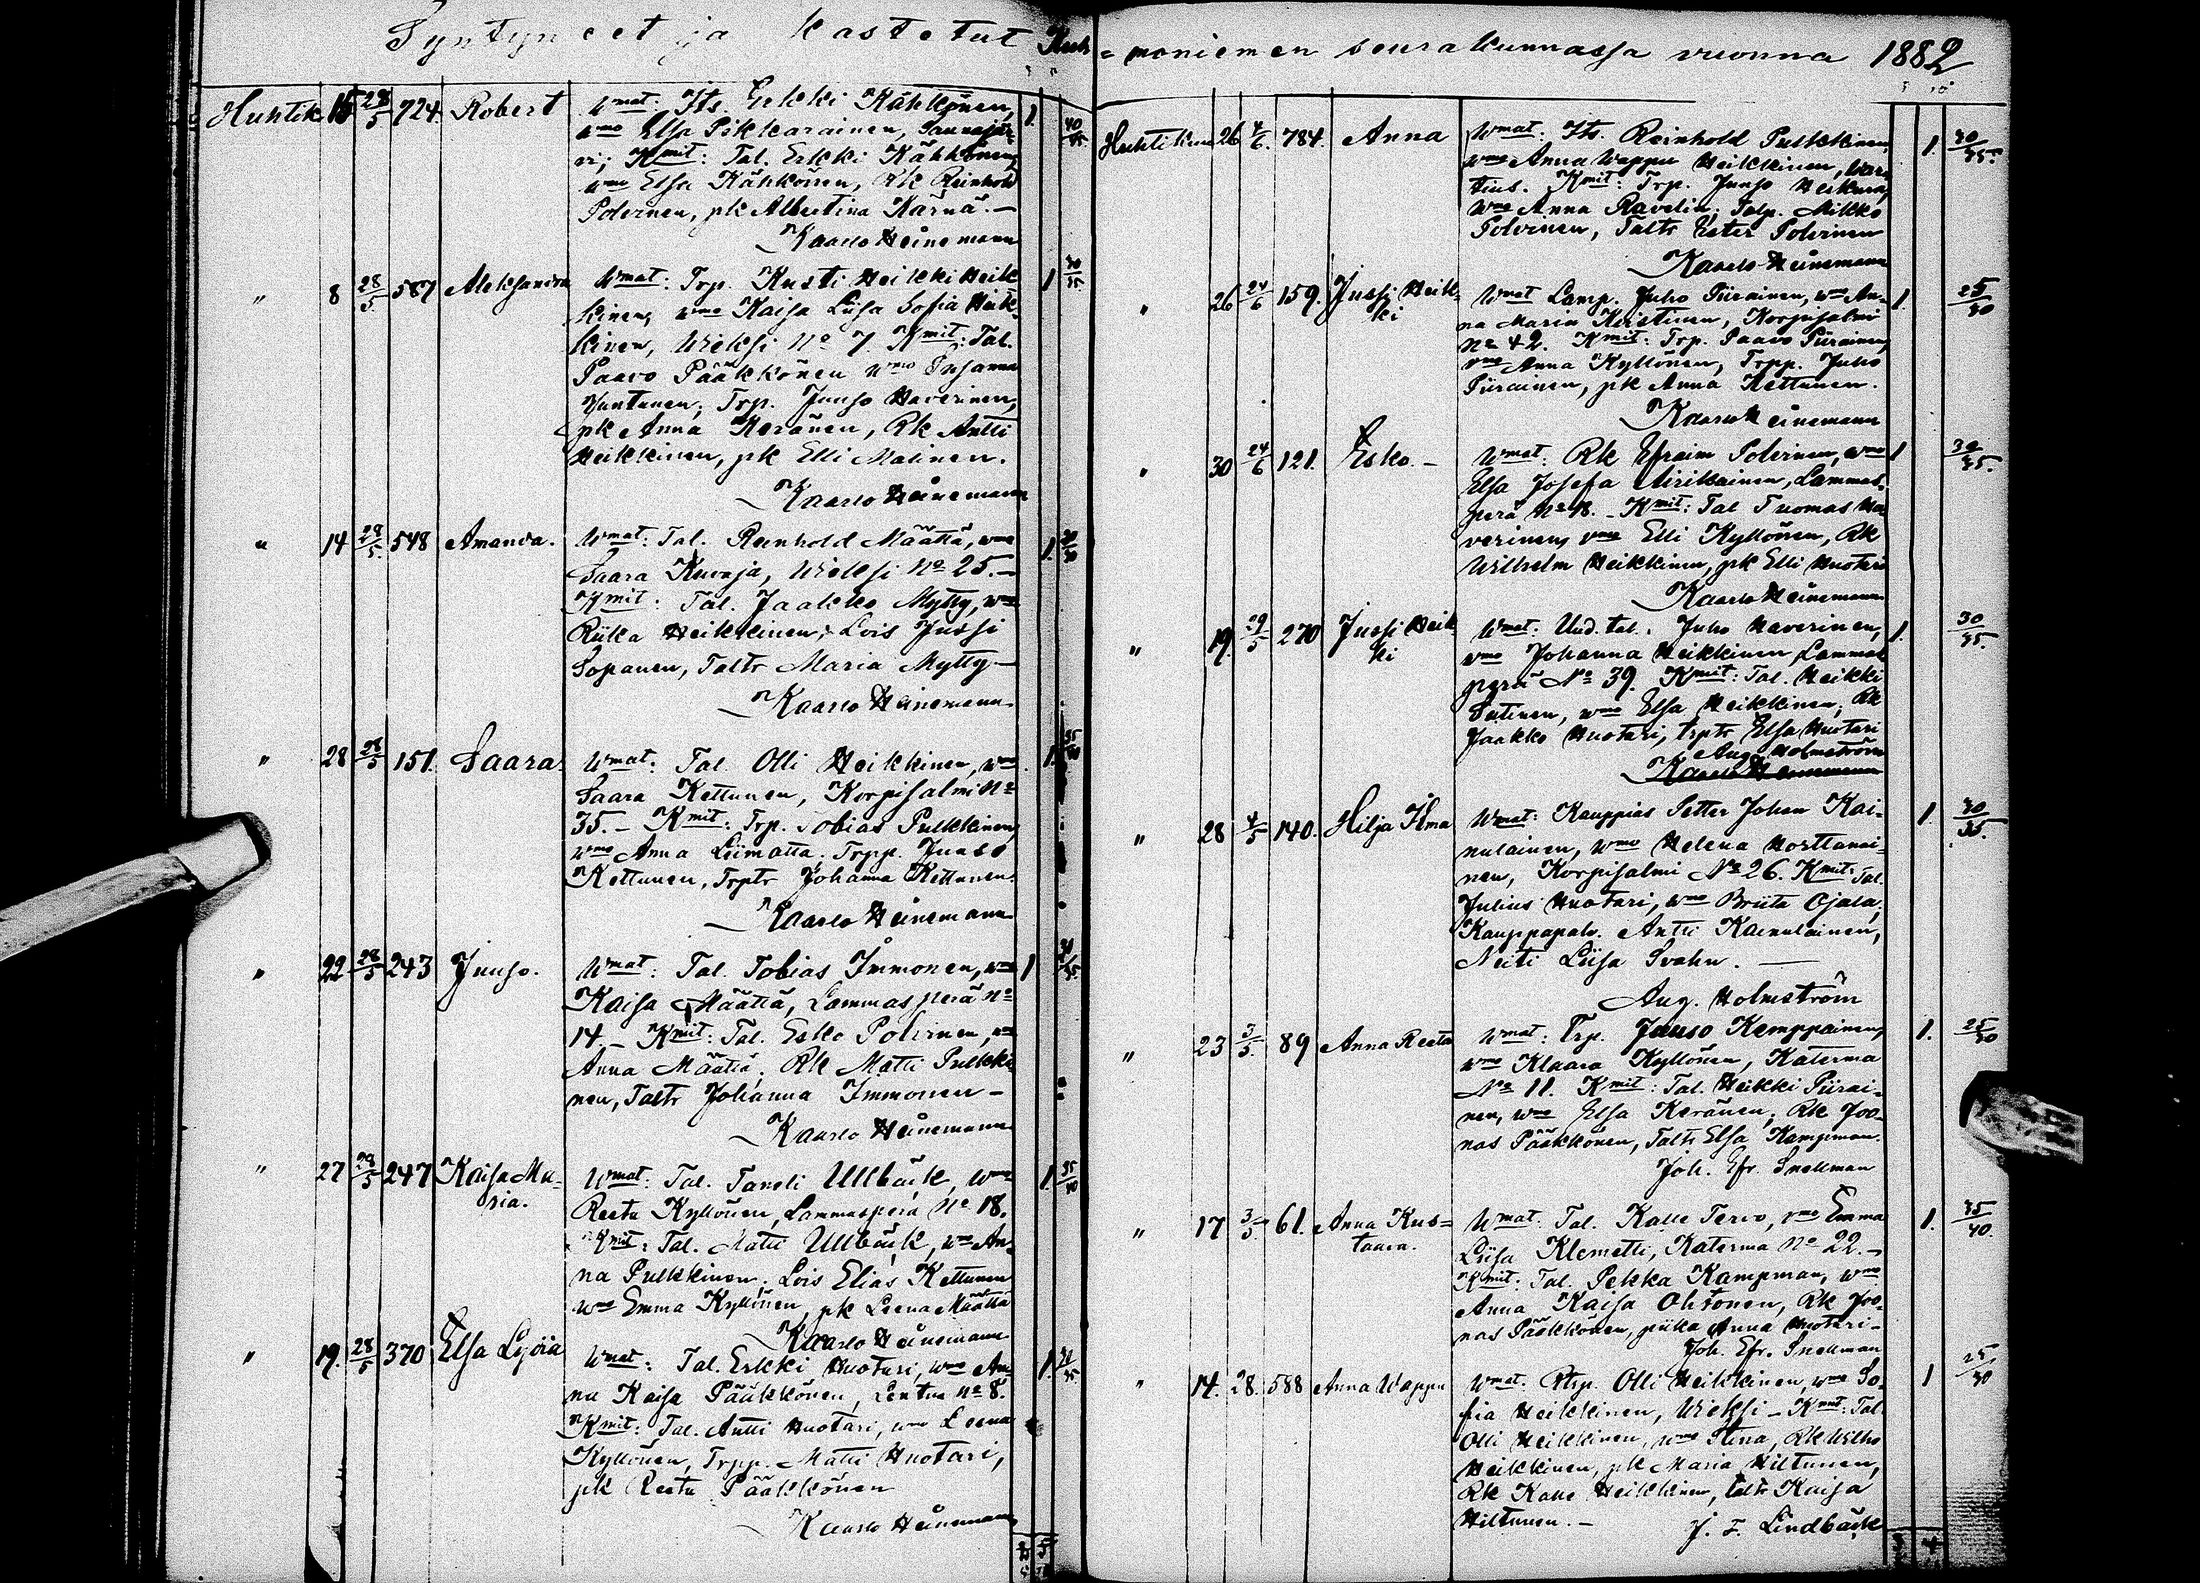 Syntyneet ja kastetut Kuh
Huhtik 15 28/5 724 Robert Wmat: Its. Erkki Kähkönen, 1. 30/35
wmo Elsa Pikkarainen, Saunajär-
vi; Kmit: Tal. Erkki Kähkönen,
wmo Elsa Kähkönen, Rk Reinhold
Polvinen, pk Albertina Kärnä. —
Kaarlo Heinemann
" 8 28/5 587 Aleksandra Wmat: Trp. Kusti Heikki Heik- 1 30/35
kinen, wmo Kaisa Liisa Sofia Heik-
kinen, Wieksi No 7. Kmit: Tal.
Paavo Pääkkönen wmo Susanna
Juntunen, Trp. Juuso Haverinen,
pk Anna Keränen, Rk Antti
Heikkinen, pk Elli Malinen.
Kaarlo Heinemann
" 14 28/5 548 Amanda. Wmat: Tal. Reinhold Määttä, wmo 1.
Saara Kuvaja, Wieksi No 25. —
Kmit: Tal. Jaakko Mytty, wmo
Riika Heikkinen; Lois Jussi
Sopanen, Taltr Maria Mytty —
Kaarlo Heinemann
" 28 28/5 151. Saara. Wmat: Tal Olli Heikkinen, wmo 1. 35/40
Saara Kettunen, Korpisalmi No
35. — Kmit: Trp. Tobias Pulkkinen,
wmo Anna Liimatta. Trpp. Juuso
Kettunen, Trptr Johanna Kettunen.
Kaarlo Heinemann
" 22 28/5 243 Juuso. Wmat: Tal. Tobias Immonen, wmo 1 30/35
Kaisa Määttä, Lammasperä No
14. — Kmit: Tal. Esko Polvinen, wmo
Anna Määttä; Rk Matti Pulkki-
nen, Taltr Johanna Immonen —
Kaarlo Heinemann
" 27 28/5 247 Kaisa Ma- Wmat: Tal. Taneli Ullbäck, wmo 1. 35/40
ria. Reeta Kyllönen, Lammasperä No 18.
Kmit: Tal. Matti Ullbäck, wmo An-
na Pulkkinen; Lois Elias Kettunen
wmo Emma Kyllönen, pk Leena Määttä
Kaarlo Heinemann
" 19. 28/5 370 Elsa Lyöia Wmat: Tal. Erkki Huotari, wmo An- 1. 30/35
na Kaisa Pääkkönen, Lentua No 8.
Kmit: Tal. Antti Huotari, wmo Leena
Kyllönen, Trpp. Matti Huotari,
pk Reeta Pääkkönen
Kaarlo Heinemann
= moniemen seurakunnassa vuonna 1882
Huhtikuu 26 4/6. 784. Anna Wmat: Its. Reinhold Pulkkinen, 1. 30/35.
wmo Anna Wappu Heikkinen, War-
tius. Kmit: Trp. Juuso Heikura,
wmo Anna Ravelin; Talp. Mikko
Polvinen, Taltr Ester Polvinen
Kaarlo Heinemann
" 26 24/6 159. Jussi Heik- Wmat Lamp. Juho Piirainen, wmo An- 1. 25/30
ki na Maria Keistinen, Korpisalmi
No 42. Kmit: Trp. Paavo Piirainen,
wmo Anna Kyllönen, Trpp. Juho
Piirainen, pk Anna Kettunen.
Kaarlo Heinemann
" 30 24/6 121. Esko. — Wmat. Rk Efraim Polvinen, wmo 1 30/35.
Elsa Josefa Airikainen, Lammas-
perä No 18. — Kmit: Tal Tuomas Ha-
verinen, wmo Elli Kyllönen, Rk
Wilhelm Heikkinen, pk Elli Huotari
Kaarlo Heinemann
" 19. 29/5 270 Jussi Heik- Wmat: Uud. tal. Juho Haverinen, 1. 30/35.
ki wmo Johanna Heikkinen Lammas-
perä No 39. Kmit: Tal. Heikki
Sutinen, wmo Elsa Heikkinen; Rk
Jaakko Huotari, trptr Elsa Huotari
Aug. Holmström
Kaarlo Heinemann
" 28 4/5 140. Hilja Ilma Wmat: Kauppias Petter Johan Kai- 1. 30/35.
nulainen, wmo Helena Horttanai-
nen, Korpisalmi No 26. Kmit: Tal.
Julius Huotari, wmo Briita Ojala;
Kauppapalv. Antti Kainulainen,
Neiti Liisa Svahn. —
Aug. Holmström
" 23 3/5. 89 Anna Reeta Wmat: Trp. Juuso Kemppainen, 1. 25/30
wmo Klaara Kyllönen, Katerma
No 11. Kmit: Tal. Heikki Piirai-
nen, wmo Elsa Keränen; Rk Joo-
nas Pääkkönen, Taltr Elsa Kampman.
Joh. Efr. Snellman
" 17 3/5 61. Anna Kus- Wmat. Tal. Kalle Tervo, wmo Emma 1. 35/40.
taava. Liisa Klemetti, Katerma No 22. —
Kmit: Tal. Pekka Kampman, wmo
Anna Kaisa Ohtonen, Rk Joo-
nas Pääkkönen, piika Anna Huotari —
Joh. Efr. Snellman
" 14. 28. 588 Anna Wappu Wmat. Rtrp. Olli Heikkinen, wmo So- 1 25/30
fia Heikkinen, Wieksi — Kmit: Tal
Olli Heikkinen, wmo Stina, Rk Wilho
Heikkinen, pk Maria Hiltunen,
Rk Kalle Heikkinen, taltr Kaisa
Hiltunen. —
J. F. Lindbäck